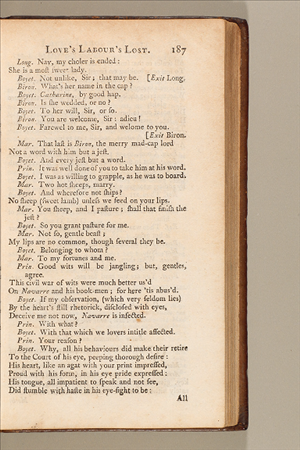 LOVE'S LABOUR'S LOST. 187
Long. Nay, my choler is ended:
She is a most sweet lady.
Boyet. Not unlike, Sir; that may be. [Exit Long.
Biron. What's her name in the cap?
Boyet. Catharine, by good hap.
Biron. Is she wedded, or no?
Boyet. To her will, Sir, or so.
Biron. You are welcome, Sir: adieu!
Boyet. Farewel to me, Sir, and welome to you.
[Exit Biron.
Mar. That last is Biron, the merry mad-cap lord
Not a word with him but a jest.
Boyet. And every jest but a word.
Prin. It was well done of you to take him at his word.
Boyet. I was as willing to grapple, as he was to board.
Mar. Two hot sheeps, marry.
Boyet. And wherefore not ships?
No sheep (sweet lamb) unless we feed on your lips.
Mar. You sheep, and I pasture; shall that finish the
jest?
Boyet. So you grant pasture for me.
Mar. Not so, gentle beast;
My lips are no common, though several they be.
Boyet. Belonging to whom?
Mar. To my fortunes and me.
Prin. Good wits will be jangling; but, gentles,
agree.
This civil war of wits were much better us'd
On Navarre and his book-men; for here 'tis abus'd.
Boyet. If my observation, (which very seldom lies)
By the heart's still rhetorick, disclosed with eyes,
Deceive me not now, Navarre is infected.
Prin. With what?
Boyet. With that which we lovers intitle affected.
Prin. Your reason?
Boyet. Why, all his behaviours did make their retire
To the Court of his eye, peeping thorough desire:
His heart, like an agat with your print impressed,
Proud with his form, in his eye pride expressed:
His tongue, all impatient to speak and not see,
Did stumble with haste in his eye-sight to be:
All